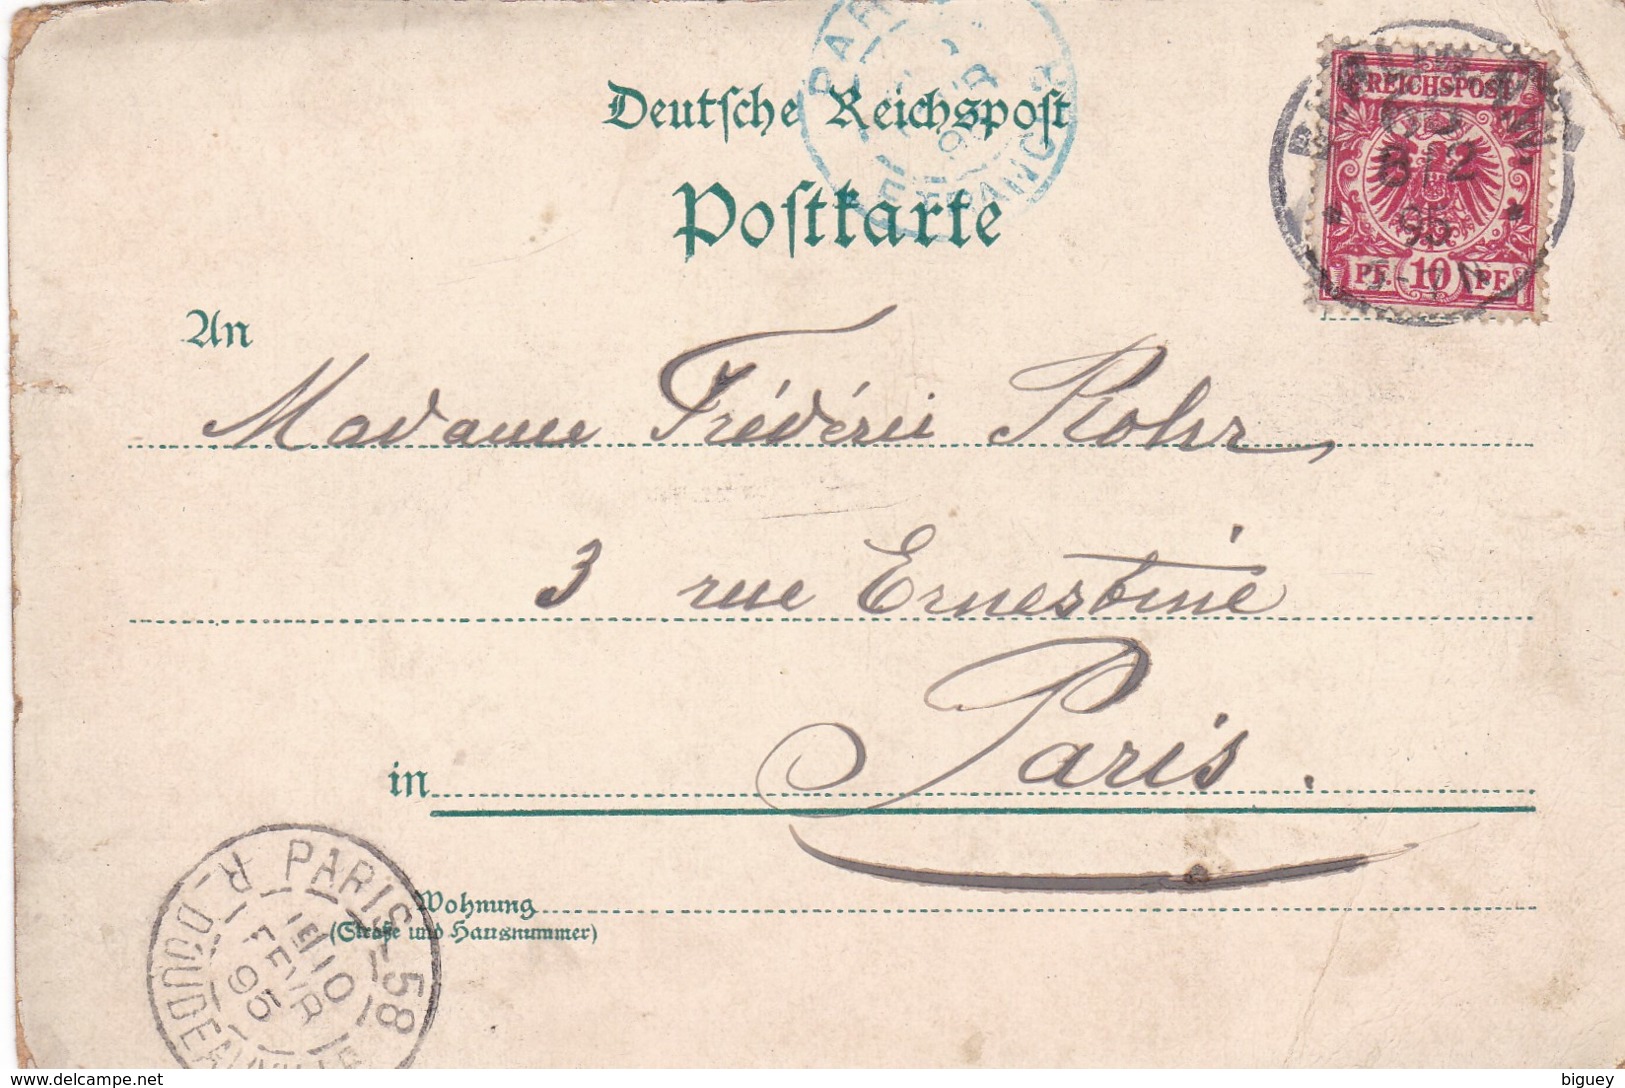 Deutsche Reichspost
Postkarte
REICHSPOST
8/2
95
PF. 10 PF
An
Madame Frédéric Rohr
3 rue Ernestine
in Paris.
Wohnung
(Straße und Hausnummer)
PARIS-58
R. DOUDEAUVILLE
10
FEVR
95
delcampe.net
biguey